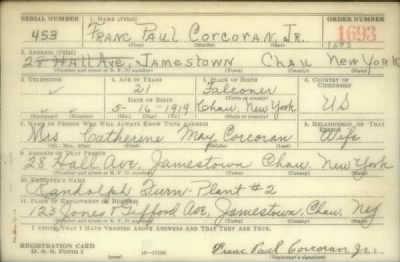 SERIAL NUMBER 1. NAME (Print) ORDER NUMBER
453 FRANC PAUL CORCORAN, JR. 1693
(First) (Middle) (Last)
2. ADDRESS (Print)
28 HALL AVE, JAMESTOWN CHAU NEW YORK
(Town) (County) (State)
3. TELEPHONE 4. AGE IN YEARS 5. PLACE OF BIRTH 6. COUNTRY OF CITIZENSHIP
21 Falconer
DATE OF BIRTH (Town or county)
5-16-1919 Chau, New York US
(Mo.) (Day) (Yr.) (State or country)
7. NAME OF PERSON WHO WILL ALWAYS KNOW YOUR ADDRESS 8. RELATIONSHIP OF THAT PERSON
Mrs Catherine May Corcoran Wife
(Mr., Mrs., Miss) (First) (Middle) (Last)
9. ADDRESS OF THAT PERSON
28 Hall Ave Jamestown Chau, New York
(Number and street or R. F. D. number) (Town) (County) (State)
10. EMPLOYER'S NAME
Randolph Furn-Plant #2
11. PLACE OF EMPLOYMENT OR BUSINESS
123 Jones + Gifford Ave, Jamestown, Chau, NY
(Number and street or R. F. D. number) (Town) (County) (State)
I AFFIRM THAT I HAVE VERIFIED ABOVE ANSWERS AND THAT THEY ARE TRUE.
REGISTRATION CARD
D. S. S. Form 1 (over) Franc Paul Corcoran Jr.
(Registrant's signature)